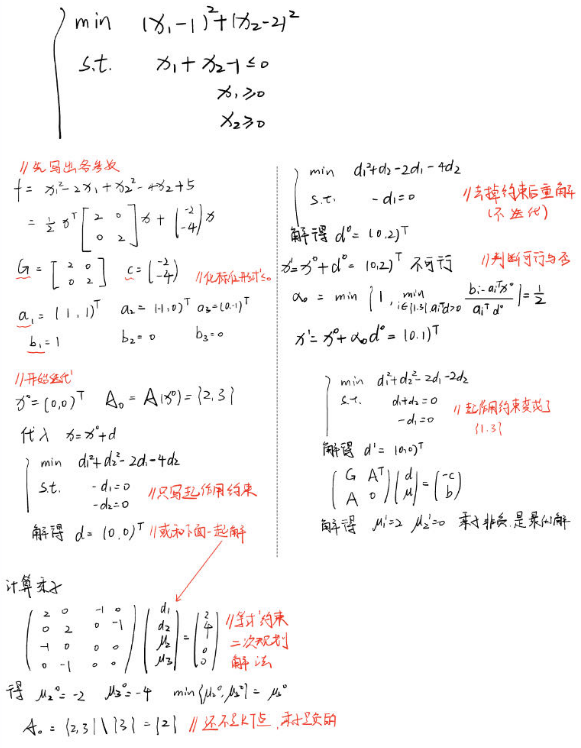 min (x₁-1)²+(x₂-2)²
s.t. x₁+x₂-1≤0
x₁≥0
x₂≥0
//先写出各参数
f = x₁²-2x₁+x₂²-4x₂+5
= ½ xᵀ [2 0; 0 2] x + (-2 -4) x
G = [2 0; 0 2] c = (-2 -4) //化标准形式≤0
a₁ = (1,1)ᵀ a₂ = (-1,0)ᵀ a₃ = (0,-1)ᵀ
b₁ = 1 b₂ = 0 b₃ = 0
//开始迭代
x⁰ = (0,0)ᵀ A₀ = A(x⁰) = {2,3}
代入 x = x⁰+d
min d₁²+d₂²-2d₁-4d₂
s.t. -d₁=0
-d₂=0 //只写起作用约束
解得 d = (0,0)ᵀ //或和下面一起解
计算乘子
(2 0 -1 0; 0 2 0 -1; -1 0 0 0; 0 -1 0 0) (d₁ d₂ μ₂ μ₃) = (2 4 0 0) //等式约束
二次规划
解法
得 μ₂⁰=-2 μ₃⁰=-4 min{μ₂⁰,μ₃⁰} = μ₃⁰
A₀ = {2,3}\{3} = {2} //还不是KT点,乘子是负的
min d₁²+d₂-2d₁-4d₂
s.t. -d₁=0 //去掉约束后重解
(不迭代)
解得 d⁰ = (0,2)ᵀ
x¹=x⁰+d⁰ = (0,2)ᵀ 不可行 //判断可行与否
α₀ = min {1, min i∈{1,3} aᵢᵀd>0 (bᵢ-aᵢᵀx⁰)/(aᵢᵀd⁰)} = ½
x¹ = x⁰+α₀d⁰ = (0,1)ᵀ
min d₁²+d₂²-2d₁-2d₂
s.t. d₁+d₂=0
-d₁=0 //起作用约束变成了
{1,3}
解得 d¹ = (0,0)ᵀ
(G Aᵀ; A 0) (d μ) = (-c b)
解得 μ₁¹=2 μ₂¹=0 乘子非负,是最优解